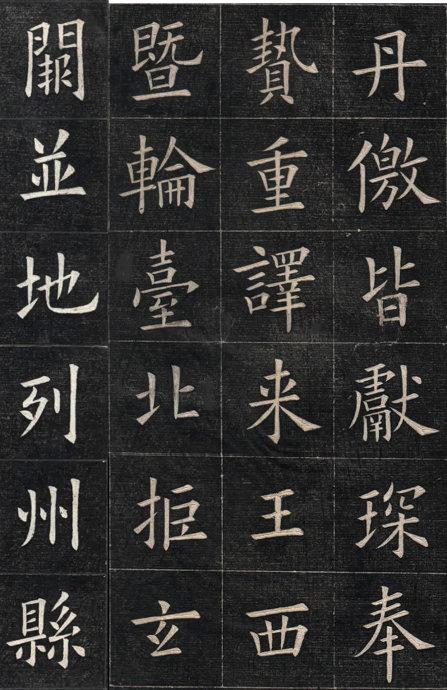 丹僌皆獻琛奉
贄重譯来王西
曁輪臺北拒玄
闕並地列州縣